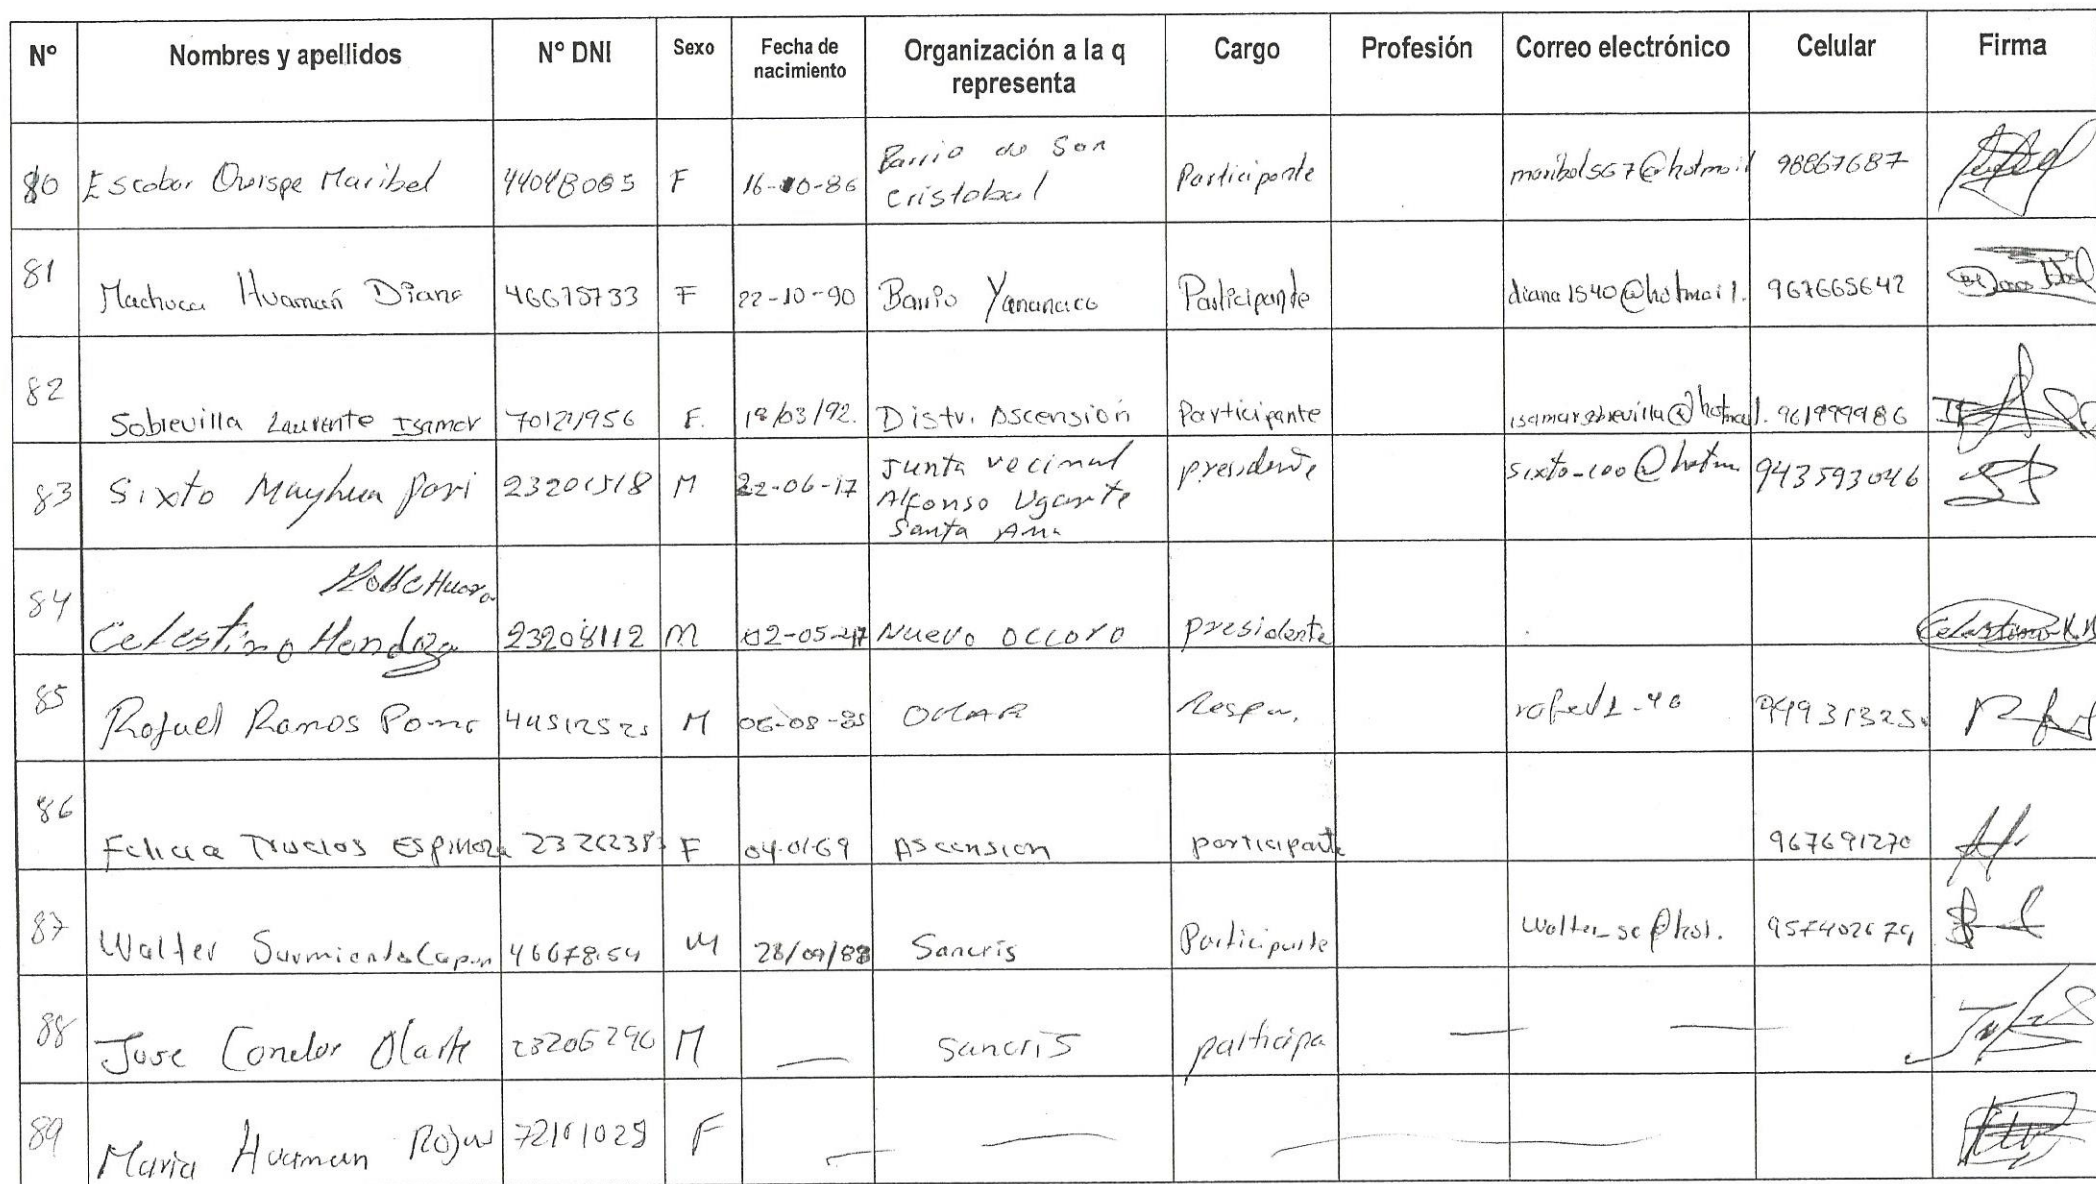 N° Nombres y apellidos N° DNI Sexo Fecha de nacimiento Organización a la q representa Cargo Profesión Correo electrónico Celular Firma
80 Escobar Quispe Maribel 44048065 F 16-10-86 Barrio de San Cristobal Participante 98867687
81 Machuca Huamań Diana 46675733 F 22-10-90 Barrio Yananaco Participante diana1540@hotmail. 967665642
82 Sobrevilla Laurente Isamar 70121956 F. /03/92. Distr. Ascensión Participante 961999986
83 Sixto Mayhua Pari 23201518 M 22-06-17 Junta vecinal Alfonso Ugarte Santa Ana presidente sixto-100@hotm 943593046
84 Celestino Mendoza 23208112 M 02-05-47 Nuevo Occoro presidente
85 Rafael Ramos Poma M 06-08- Respon.
86 Felicia Truclos Espinoza F 04-01-69 Ascension participante 967691270
87 Walter Sarmiento M 28/09/88 Sancris Participante Walter_sc@hot. 957402679
88 Jose Condor Olarte 23206290 M — Sancris participa — —
89 Maria Huaman Rojas 72101029 F — — —